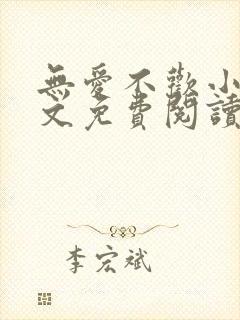 無愛不歡小
文免費閱讀
李宏斌